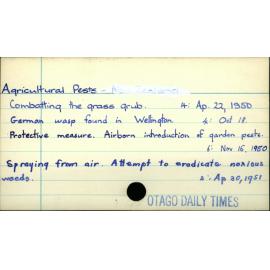 Agricultural Pests - New Zealand
Combatting the grass grub. 4: Ap. 22, 1950
German wasp found in Wellington. 6: Oct 18.
Protective measure. Airborn introduction of garden pests.
6: Nov 15, 1950
Spraying from air. Attempt to eradicate noxious
weeds. 2: Ap 20, 1951
OTAGO DAILY TIMES